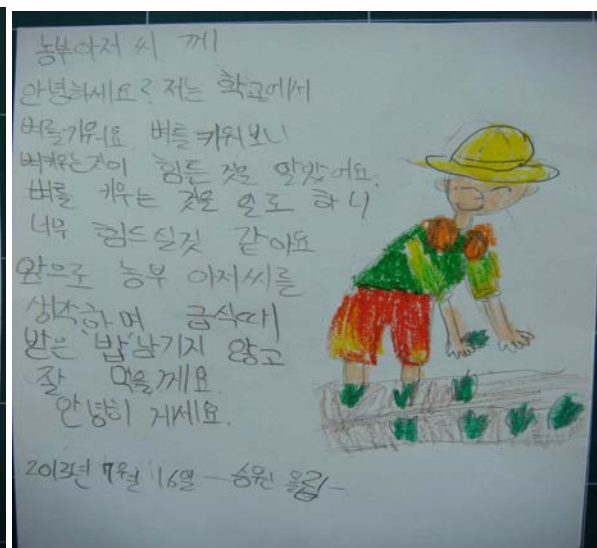 농부아저씨 께
안녕하세요? 저는 학교에서
벼를키워요 벼를 키워보니
벼키우는것이 힘든 것을 알았어요.
벼를 키우는 것을 일로 하니
너무 힘드실것 같아요
앞으로 농부 아저씨를
생각하며 급식때
받은 밥남기지 않고
잘 먹을께요
안녕히 계세요.
2013년 7월 16일 -승원 올림-